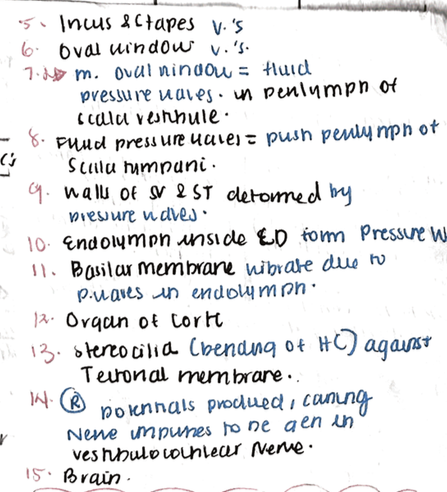 5. Incus & Stapes v.'s
6. Oval window v.'s.
7. m. oval window = fluid
pressure waves. in perilymph of
scala vestibule.
8. Fluid pressure waves = push perilymph of
Scala tympani.
9. walls of SV & ST deformed by
pressure waves.
10. Endolymph inside CD form Pressure W
11. Basilar membrane vibrate due to
p.waves in endolymph.
12. Organ of Corti
13. stereocilia (bending of HC) against
Tectorial membrane.
14. (R) potentials produced, causing
Nerve impulses to be gen in
vestibulocochlear Nerve.
15. Brain.